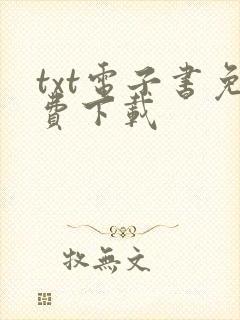 txt電子書免
費下載
牧無文